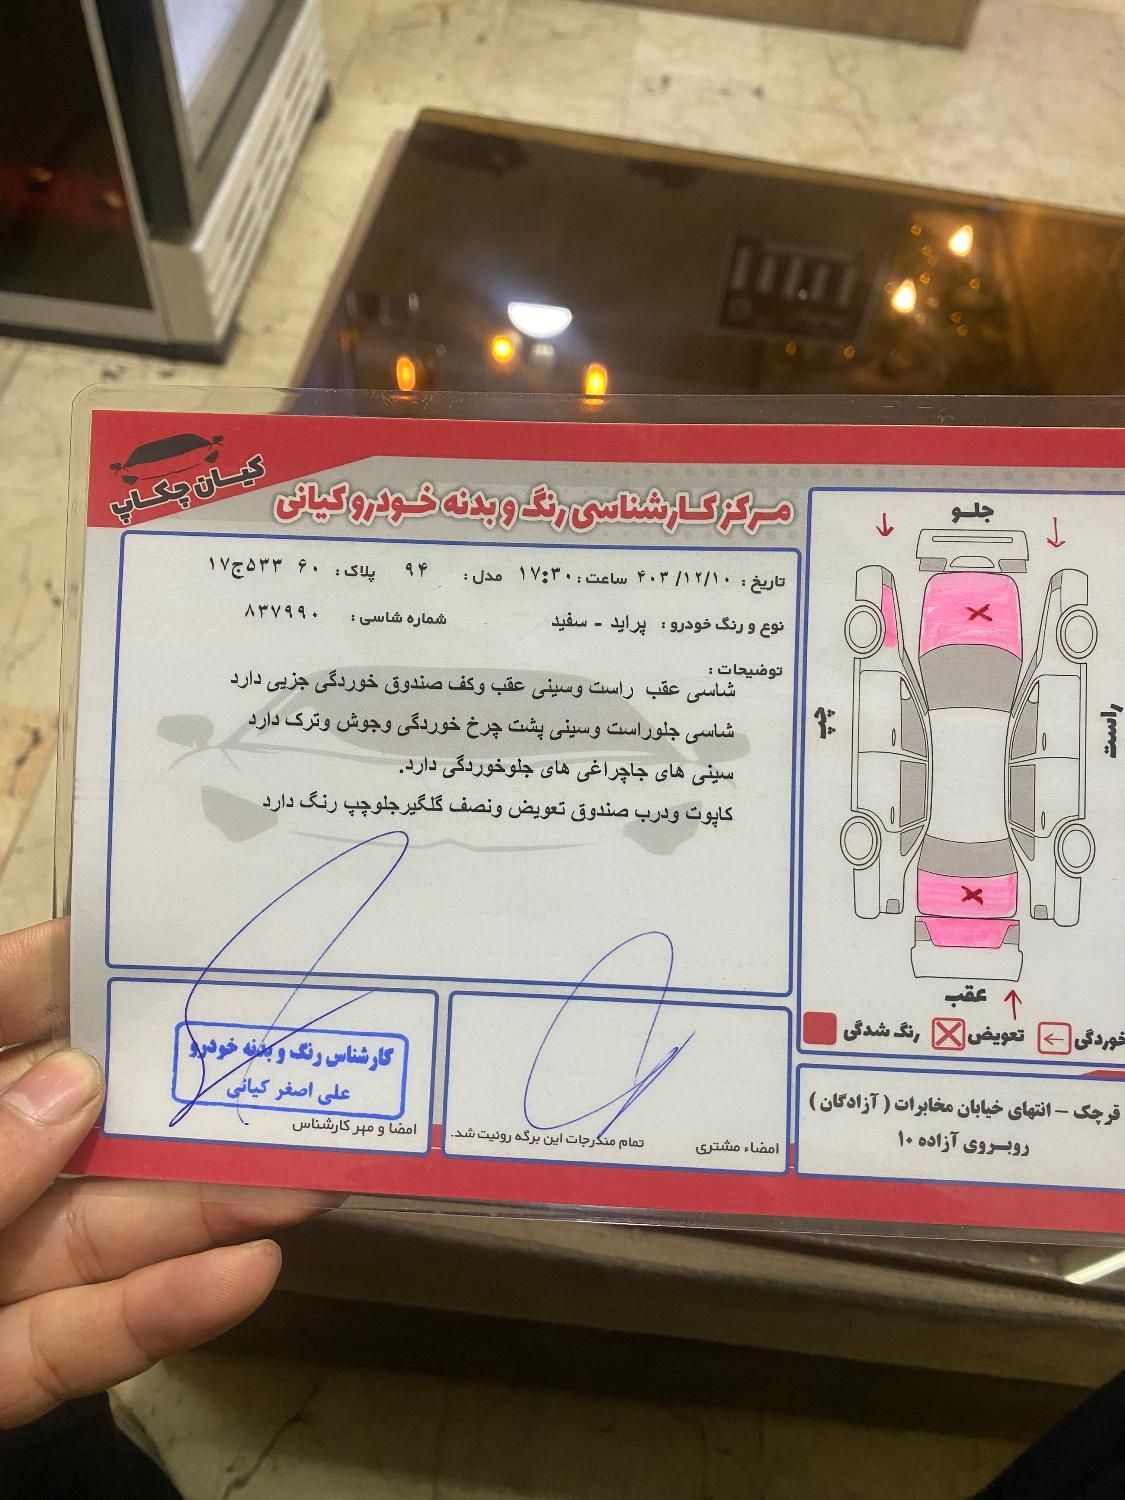 کیان چکاپ
مرکز کارشناسی رنگ و بدنه خودرو کیانی
تاریخ : ۴۰۳/۱۲/۱۰ ساعت : ۱۷:۳۰ مدل : ۹۴ پلاک : ۶۰ ۵۳۳ج۱۷
نوع و رنگ خودرو : پراید - سفید شماره شاسی : ۸۳۷۹۹۰
توضیحات :
شاسی عقب راست وسینی عقب وکف صندوق خوردگی جزیی دارد
شاسی جلوراست وسینی پشت چرخ خوردگی وجوش وترک دارد
سینی های جاچراغی های جلوخوردگی دارد.
کاپوت ودرب صندوق تعویض ونصف گلگیرجلوچپ رنگ دارد
کارشناس رنگ و بدنه خودرو
علی اصغر کیانی
امضا و مهر کارشناس
امضاء مشتری
تمام مندرجات این برگه رویت شد.
جلو
چپ
راست
عقب
خوردگی تعویض رنگ شدگی
قرچک – انتهای خیابان مخابرات ( آزادگان )
روبروی آزاده ۱۰